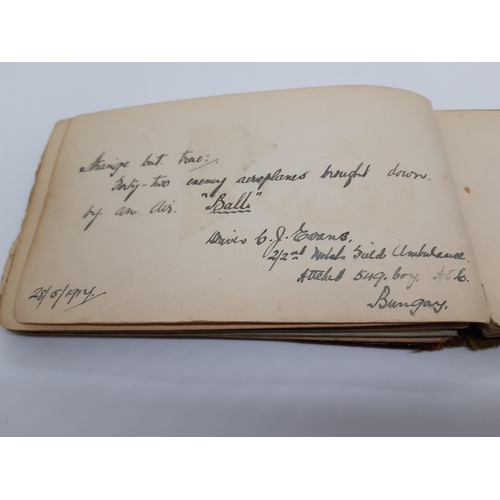 Strange but true:-
Forty-two enemy aeroplanes brought down
by an Air. "Ball"
Driver C. J. Evans,
2/2nd Welsh Field Ambulance
Attched 549. Coy. A.S.C.
Bungay.
28/5/1917